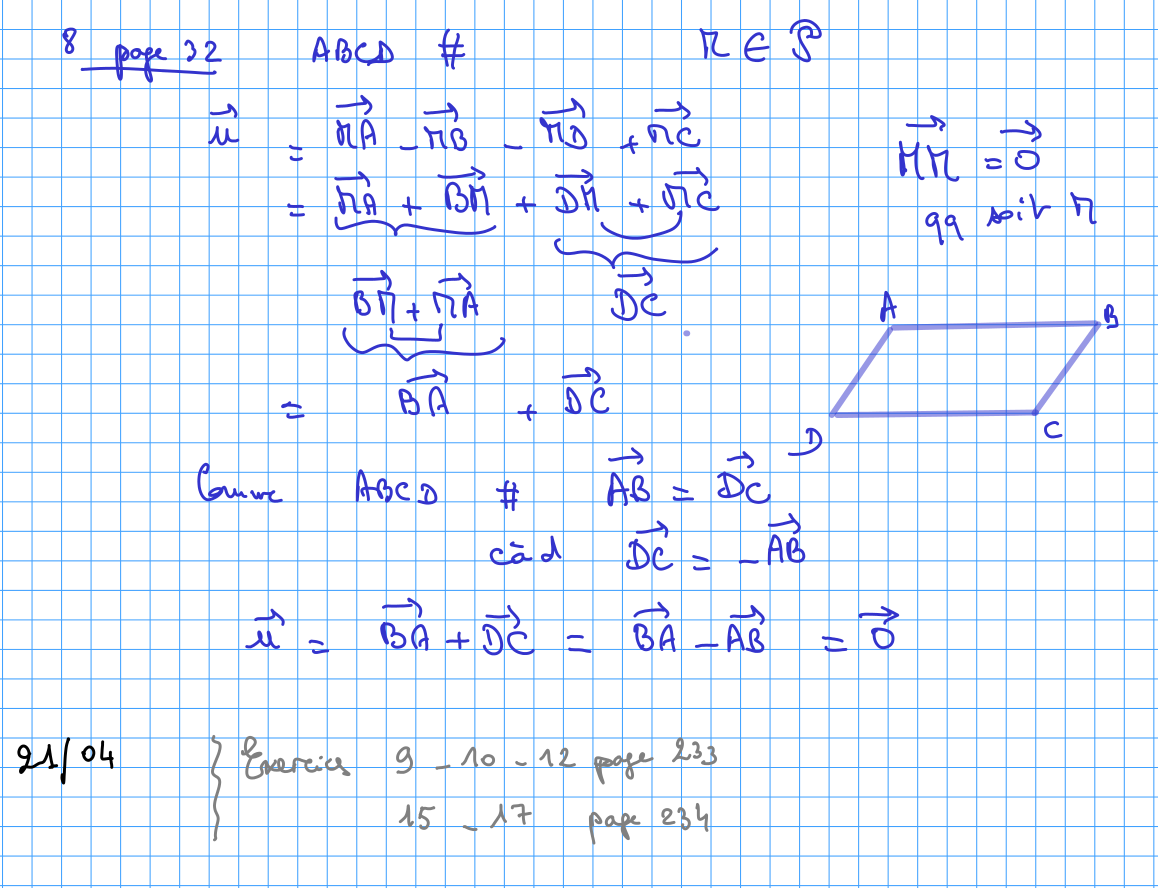 8 page 32 ABCD # M ∈ P
u⃗ = MA⃗ - MB⃗ - MD⃗ + MC⃗
= MA⃗ + BM⃗ + DM⃗ + MC⃗
MM⃗ = 0⃗
qq soit M
BM⃗ + MA⃗ DC⃗
= BA⃗ + DC⃗
A B
D C
Comme ABCD # AB⃗ = DC⃗
càd DC⃗ = -AB⃗
u⃗ = BA⃗ + DC⃗ = BA⃗ - AB⃗ = 0⃗
21/04 Exercices 9 - 10 - 12 page 233
15 - 17 page 234